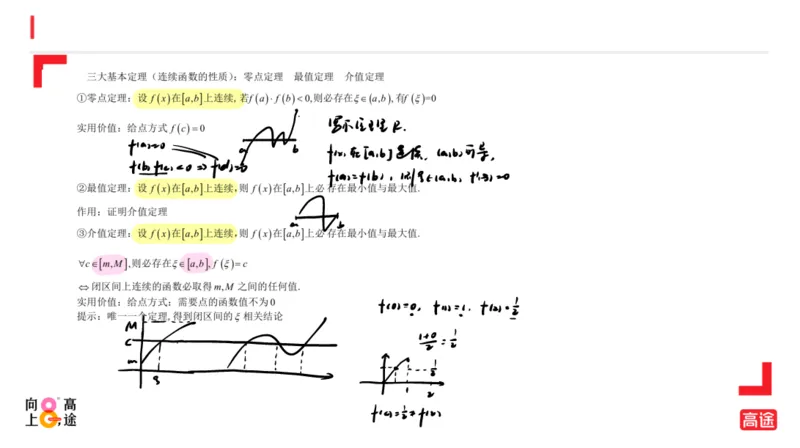 三大基本定理（连续函数的性质）：零点定理 最值定理 介值定理
①零点定理：设 f(x)在[a,b]上连续,若f(a)·f(b)<0,则必存在ξ∈(a,b),有f(ξ)=0
实用价值：给点方式 f(c)=0
f(a)=0
a b
f(x)在[a,b]连续，(a,b)可导，
f(a)=f(b)，则∃ξ∈(a,b)，f'(ξ)=0
②最值定理：设 f(x)在[a,b]上连续,则 f(x)在[a,b]上必存在最小值与最大值.
作用：证明介值定理
a b
③介值定理：设 f(x)在[a,b]上连续,则 f(x)在[a,b]上必存在最小值与最大值.
∀c∈[m,M],则必存在ξ∈[a,b],f(ξ)=c
⇔闭区间上连续的函数必取得m,M之间的任何值.
实用价值：给点方式：需要点的函数值不为0
提示：唯一一个定理,得到闭区间的ξ相关结论
f(0)=0, f(1)=1, f(2)=1/2
(1+0)/2=1/2
M
C
m
ξ
1/2
1 2
f(c)=1/2≠f(2)
向上 高途
高途